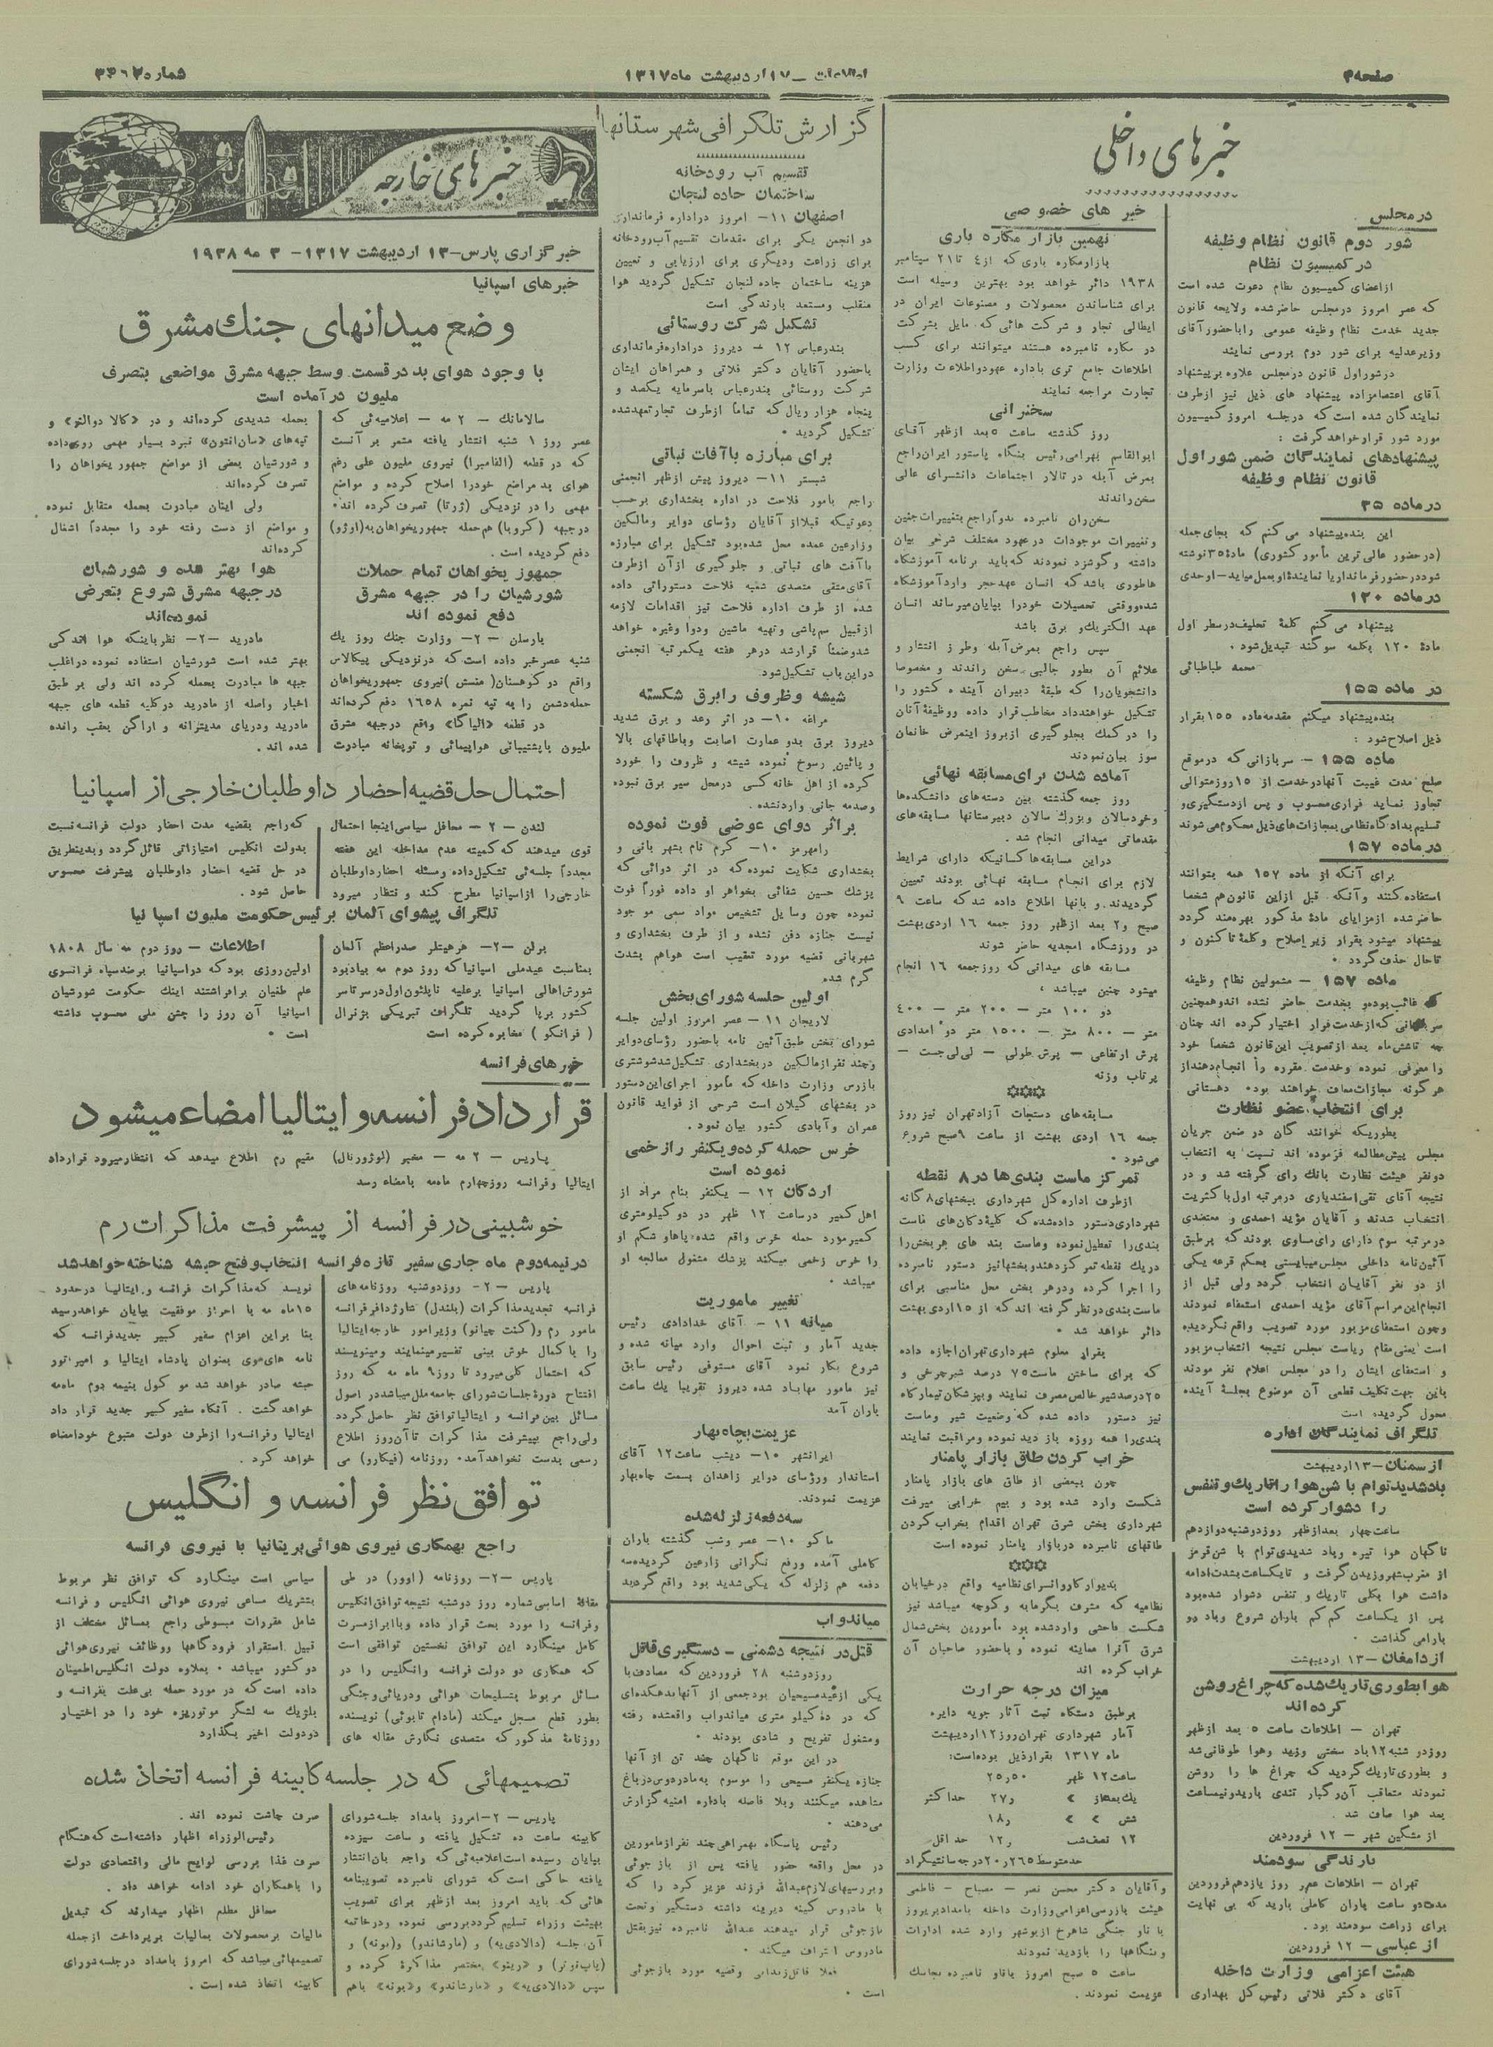 صفحه ۴
اطلاعات – ۱۷ اردیبهشت ماه ۱۳۱۷
شماره ۳۴۶۲
خبرهای داخلی
در مجلس
شور دوم قانون نظام وظیفه
در کمیسیون نظام
از اعضای کمیسیون نظام دعوت شده است
که عصر امروز در مجلس حاضر شده ولایحه قانون
جدید خدمت نظام وظیفه عمومی را با حضور آقای
وزیر عدلیه برای شور دوم بررسی نمایند
در شور اول قانون در مجلس علاوه بر پیشنهاد
آقای اعتصام زاده پیشنهاد های ذیل نیز از طرف
نمایندگان شده است که در جلسه امروز کمیسیون
مورد شور قرار خواهد گرفت :
پیشنهادهای نمایندگان ضمن شور اول
قانون نظام وظیفه
در ماده ۳۵
این بنده پیشنهاد می کنم که بجای جمله
(در حضور عالی ترین مأمور کشوری) مادهٔ ۳۵ نوشته
شود در حضور فرماندار یا نمایندهٔ او بعمل میاید – اوحدی
در ماده ۱۲۰
پیشنهاد می کنم کلمهٔ تحلیف در سطر اول
مادهٔ ۱۲۰ بکلمه سوگند تبدیل شود .
محمد طباطبائی
در ماده ۱۵۵
بنده پیشنهاد میکنم مقدمه ماده ۱۵۵ بقرار
ذیل اصلاح شود :
ماده ۱۵۵ – سربازانی که در موقع
صلح مدت غیبت آنها در خدمت از ۱۵ روز متوالی
تجاوز نماید فراری محسوب و پس از دستگیری و
تسلیم بدادگاه نظامی بمجازات های ذیل محکوم می شوند
در ماده ۱۵۷
برای آنکه از ماده ۱۵۷ همه بتوانند
استفاده کنند و آنکه قبل از این قانون هم شخصا
حاضر شده از مزایای مادهٔ مذکور بهره مند گردد
پیشنهاد میشود بقرار زیر اصلاح و کلمهٔ تاکنون و
تا حال حذف گردد .
ماده ۱۵۷ – مشمولین نظام وظیفه
که غائب بوده و بخدمت حاضر نشده اند و همچنین
سربازانی که از خدمت فرار اختیار کرده اند چنان
چه تا شش ماه بعد از تصویب این قانون شخصاً خود
را معرفی نموده و خدمت مقرره را انجام دهند از
هر گونه مجازات معاف خواهند بود . دهستانی
برای انتخاب عضو نظارت
بطوریکه خوانند گان در ضمن جریان
مجلس پیش مطالعه فرموده اند نسبت به انتخاب
دو نفر هیئت نظارت بانک رای گرفته شد و در
نتیجه آقای تقی اسفندیاری در مرتبه اول با کثریت
انتخاب شدند و آقایان مؤید احمدی و معتضدی
در مرتبه سوم دارای رای مساوی بودند که بر طبق
آئین نامه داخلی مجلس میبایستی بحکم قرعه یکی
از دو نفر آقایان انتخاب گردد ولی قبل از
انجام این مراسم آقای مؤید احمدی استعفاء نمودند
وچون استعفای مزبور مورد تصویب واقع نگردیده
است یعنی مقام ریاست مجلس نتیجه انتخاب مزبور
و استعفای ایشان را در مجلس اعلام نفر مودند
باین جهت تکلیف قطعی آن موضوع بجلسهٔ آینده
محول گردیده است
تلگراف نمایندگان اداره
از سمنان – ۱۳ اردیبهشت
باد شدید توام با شن هوا را تاریک و تنفس
را دشوار کرده است
ساعت چهار بعد از ظهر روز دوشنبه دوازدهم
ناگهان هوا تیره و باد شدیدی توام با شن قرمز
از مغرب شهر وزیدن گرفت و تا یکساعت بشدت ادامه
داشت هوا بکلی تاریک و تنفس دشوار شده بود
پس از یکساعت کم کم باران شروع و باد رو
بارامی گذاشت .
از دامغان – ۱۳ اردیبهشت
هوا بطوری تاریک شده که چراغ روشن
کرده اند
تهران – اطلاعات ساعت ۵ بعد از ظهر
روز در شنبه ۱۲ باد سختی وزید و هوا طوفانی شد
و بطوری تاریک گردید که چراغ ها را روشن
نمودند متعاقب آن رگبار تندی بارید و نیمساعت
بعد هوا صاف شد .
از مشگین شهر – ۱۲ فروردین
بارندگی سودمند
تهران – اطلاعات عصر روز یازدهم فروردین
مدت دو ساعت باران کاملی بارید که بی نهایت
برای زراعت سودمند بود .
از عباسی – ۱۲ فروردین
هیئت اعزامی وزارت داخله
آقای دکتر فلاتی رئیس کل بهداری
خبر های خصوصی
نهمین بازار مکاره باری
بازار مکاره باری که از ۴ تا ۲۱ سپتامبر
۱۹۳۸ دائر خواهد بود بهترین وسیله است
برای شناساندن محصولات و مصنوعات ایران در
ایطالی تجار و شرکت هائی که مایل بشرکت
در مکاره نامبرده هستند میتوانند برای کسب
اطلاعات جامع تری باداره عهود و اطلاعات وزارت
تجارت مراجعه نمایند
سخنرانی
روز گذشته ساعت ۵ بعد از ظهر آقای
ابوالقاسم بهرامی رئیس بنگاه پاستور ایران راجع
بمرض آبله در تالار اجتماعات دانشسرای عالی
سخن راندند
سخن ران نامبرده بدواً راجع بتغییرات جنین
و تغییرات موجودات در عهود مختلف شرحی بیان
داشته و گوشزد نمودند که باید برنامه آموزشگاه
ها طوری باشد که انسان عهد حجر وارد آموزشگاه
شده و وقتی تحصیلات خود را بپایان میرساند انسان
عهد الکتریک و برق باشد
سپس راجع بمرض آبله و طرز انتشار و
علائم آن بطور جالبی سخن راندند و مخصوصا
دانشجویان را که طبقهٔ دبیران آینده کشور را
تشکیل خواهند داد مخاطب قرار داده و وظیفهٔ آنان
را در کمک بجلوگیری از بروز این مرض خانمان
سوز بیان نمودند
آماده شدن برای مسابقه نهائی
روز جمعه گذشته بین دسته های دانشکده ها
و خردسالان و بزرگ سالان دبیرستانها مسابقه های
مقدماتی میدانی انجام شد .
در این مسابقه ها کسانیکه دارای شرایط
لازم برای انجام مسابقه نهائی بودند تعیین
گردیدند و بانها اطلاع داده شد که ساعت ۹
صبح و ۲ بعد از ظهر روز جمعه ۱۶ اردی بهشت
در ورزشگاه امجدیه حاضر شوند
مسابقه های میدانی که روز جمعه ۱۶ انجام
میشود چنین میباشد .
دو ۱۰۰ متر – ۲۰۰ متر – ۴۰۰
متر – ۸۰۰ متر – ۱۵۰۰ متر دو امدادی
پرش ارتفاعی – پرش طولی – لی لی جست –
پرتاب وزنه
مسابقه های دستجات آزاد تهران نیز روز
جمعه ۱۶ اردی بهشت از ساعت ۹ صبح شروع
می شود .
تمرکز ماست بندی ها در ۸ نقطه
از طرف اداره کل شهرداری ببخشهای ۸ گانه
شهرداری دستور داده شده که کلیهٔ دکان های ماست
بندی را تعطیل نموده و ماست بند های هر بخش را
در یک نقطه تمرکز دهند و بخشها نیز دستور نامبرده
را اجرا کرده و در هر بخش محل مناسبی برای
ماست بندی در نظر گرفته اند که از ۱۵ اردی بهشت
دائر خواهد شد .
بقرار معلوم شهرداری تهران اجازه داده
که برای ساختن ماست ۷۵ درصد شیر چرخی و
۲۵ درصد شیر خالص مصرف نمایند و بپزشکان تیمارگاه
نیز دستور داده شده که وضعیت شیر و ماست
بندی را همه روزه باز دید نموده و مراقبت نمایند
خراب کردن طاق بازار پامنار
چون ببعضی از طاق های بازار پامنار
شکست وارد شده بود و بیم خرابی میرفت
شهرداری بخش شرق تهران اقدام بخراب کردن
طاقهای نامبرده در بازار پامنار نموده است
بدیوار کاروانسرای نظامیه واقع در خیابان
نظامیه که مشرف بگرمابه و کوچه میباشد نیز
شکست فاحشی وارد شده بود مأمورین بخش شمال
شرق آنرا معاینه نموده و با حضور صاحبان آن
خراب کرده اند
میزان درجه حرارت
بر طبق دستگاه ثبت آثار جویه دایره
آمار شهرداری تهران روز ۱۲ اردیبهشت
ماه ۱۳۱۷ بقرار ذیل بوده است:
ساعت ۱۲ ظهر ۲۵٫۵۰
یک بعد از » ۲۷٫ حداکثر
شش » » ۱۸٫
۱۲ نصف شب ۱۲٫ حداقل
حد متوسط ۲۰٫۲۶۵ درجه سانتیگراد
و آقایان دکتر محسن نصر – مصباح – فاطمی
هیئت بازرسی اعزامی وزارت داخله بامداد پریروز
با ناو جنگی شاهرخ از بوشهر وارد شده ادارات
و بنگاهها را بازدید نمودند
ساعت ۵ صبح امروز با ناو نامبرده بجاسک
عزیمت نمودند .
گزارش تلگرافی شهرستانها
تقسیم آب رودخانه
ساختمان جاده لنجان
اصفهان ۱۱ – امروز در اداره فرمانداری
دو انجمن یکی برای مقدمات تقسیم آب رودخانه
برای زراعت و دیگری برای ارزیابی و تعیین
هزینه ساختمان جاده لنجان تشکیل گردید هوا
منقلب و مستعد بارندگی است
تشکیل شرکت روستائی
بندرعباس ۱۲ – دیروز در اداره فرمانداری
با حضور آقایان دکتر فلاتی و همراهان ایشان
شرکت روستائی بندرعباس با سرمایه یکصد و
پنجاه هزار ریال که تماماً از طرف تجار تعهد شده
تشکیل گردید .
برای مبارزه با آفات نباتی
شبستر ۱۱ – دیروز پیش از ظهر انجمنی
راجع بامور فلاحت در اداره بخشداری بر حسب
دعوتیکه قبلا از آقایان رؤسای دوایر و مالکین
و زارعین عمده محل شده بود تشکیل برای مبارزه
با آفت های نباتی و جلوگیری از آن از طرف
آقای متقی متصدی شعبه فلاحت دستوراتی داده
شده از طرف اداره فلاحت نیز اقدامات لازمه
از قبیل سم پاشی و تهیه ماشین و دوا و غیره خواهد
شد و ضمناً قرار شد در هر هفته یکمرتبه انجمنی
در این باب تشکیل شود.
شیشه و ظروف را برق شکسته
مراغه ۱۰ – در اثر رعد و برق شدید
دیروز برق بدو عمارت اصابت و باطاقهای بالا
و پائین رسوخ نموده شیشه و ظروف را خورد
کرده از اهل خانه کسی در محل سیر برق نبوده
و صدمه جانی وارد نشده .
بر اثر دوای عوضی فوت نموده
رامهرمز ۱۰ – کرم نام بشهر بانی و
بخشداری شکایت نموده که در اثر دوائی که
پزشک حسین شفائی بخواهر او داده فوراً فوت
نموده چون وسایل تشخیص مواد سمی مو جود
نیست جنازه دفن نشده و از طرف بخشداری و
شهربانی قضیه مورد تعقیب است هوا هم بشدت
گرم شده.
اولین جلسه شورای بخش
لاریجان ۱۱ – عصر امروز اولین جلسه
شورای بخش طبق آئین نامه با حضور رؤسای دوایر
و چند نفر از مالکین در بخشداری تشکیل شد شوشتری
بازرس وزارت داخله که مأمور اجرای این دستور
در بخشهای گیلان است شرحی از فواید قانون
عمران و آبادی کشور بیان نمود .
خرس حمله کرده و یکنفر را زخمی
نموده است
اردکان ۱۲ – یکنفر بنام مراد از
اهل کمیر در ساعت ۱۲ ظهر در دو کیلومتری
کمیر مورد حمله خرس واقع شده، پاها و شکم او
را خرس زخمی میکند پزشک مشغول معالجه او
میباشد .
تغییر ماموریت
میانه ۱۱ – آقای خدادادی رئیس
جدید آمار و ثبت احوال وارد میانه شده و
شروع بکار نمود آقای مستوفی رئیس سابق
نیز مامور مهاباد شده دیروز تقریبا یک ساعت
باران آمد
عزیمت بچاه بهار
ایرانشهر ۱۰ – دیشب ساعت ۱۲ آقای
استاندار و رؤسای دوایر زاهدان بسمت چاه بهار
عزیمت نمودند.
سه دفعه زلزله شده
ماکو ۱۰ – عصر و شب گذشته باران
کاملی آمده و رفع نگرانی زارعین گردیده سه
دفعه هم زلزله که یکی شدید بود واقع گردید
میاندواب
قتل در نتیجه دشمنی – دستگیری قاتل
روز دوشنبه ۲۸ فروردین که مصادف با
یکی از عید مسیحیان بود جمعی از آنها بدهکده ای
که در ده کیلو متری میاندواب واقع شده رفته
و مشغول تفریح و شادی بودند .
در این موقع ناگهان چند تن از آنها
جنازه یکنفر مسیحی را موسوم به مادروس در باغ
مشاهده میکنند و بلا فاصله باداره امنیه گزارش
می دهند .
رئیس پاسگاه بهمراهی چند نفر از مامورین
در محل واقعه حضور یافته پس از باز جوئی
و بررسیهای لازم عبدالله فرزند عزیز کرد را که
با مادروس کینه دیرینه داشته دستگیر و تحت
بازجوئی قرار میدهند عبدالله نامبرده نیز بقتل
مادروس اعتراف میکند .
فعلا قاتل زندانی و قضیه مورد بازجوئی
است .
خبرهای خارجه
خبر گزاری پارس – ۱۳ اردیبهشت ۱۳۱۷ – ۳ مه ۱۹۳۸
خبرهای اسپانیا
وضع میدانهای جنگ مشرق
با وجود هوای بد در قسمت وسط جبهه مشرق مواضعی بتصرف
ملیون در آمده است
سالامانک – ۲ مه – اعلامیه ئی که
عصر روز ۱ شنبه انتشار یافته مشعر بر آنست
که در قطعه (الفامبرا) نیروی ملیون علی رغم
هوای بد مراضع خود را اصلاح کرده و مواضع
مهمی را در نزدیکی (ژرتا) تصرف کرده اند .
در جبهه (کروبا) هم حمله جمهوریخواهان به (اوژو)
دفع گردیده است .
جمهوریخواهان تمام حملات
شورشیان را در جبهه مشرق
دفع نموده اند
بارسلن – ۲ – وزارت جنگ روز یک
شنبه عصر خبر داده است که در نزدیکی پیکالاس
واقع در کوهستان ( منسش ) نیروی جمهوریخواهان
حمله دشمن را به تپه نمره ۱۶۵۸ دفع کرده اند
در قطعه «الیاگا» واقع در جبهه مشرق
ملیون با پشتیبانی هواپیمائی و توپخانه مبادرت
بحمله شدیدی کرده اند و در «کالا دوالتو» و
تپه های «سان انتون» نبرد بسیار مهمی روی داده
و شورشیان بعضی از مواضع جمهور یخواهان را
تصرف کرده اند.
ولی ایشان مبادرت بحمله متقابل نموده
و مواضع از دست رفته خود را مجدداً اشغال
کرده اند
هوا بهتر شده و شورشیان
در جبهه مشرق شروع بتعرض
نموده اند
مادرید – ۲ – نظر باینکه هوا اندکی
بهتر شده است شورشیان استفاده نموده در اغلب
جبهه ها مبادرت بحمله کرده اند ولی بر طبق
اخبار واصله از مادرید در کلیه قطعه های جبهه
مادرید و دریای مدیترانه و اراگن بعقب رانده
شده اند .
احتمال حل قضیه احضار داوطلبان خارجی از اسپانیا
لندن – ۲ – محافل سیاسی اینجا احتمال
قوی میدهند که کمیته عدم مداخله این هفته
مجدداً جلسه ئی تشکیل داده و مسئله احضار داوطلبان
خارجی را از اسپانیا مطرح کند و انتظار میرود
که راجع بقضیه مدت احضار دولت فرانسه نسبت
بدولت انگلیس امتیازاتی قائل گردد و بدینطریق
در حل قضیه احضار داوطلبان پیشرفت محسوس
حاصل شود .
تلگراف پیشوای آلمان بر ئیس حکومت ملیون اسپانیا
برلن – ۲ – هرهیتلر صدراعظم آلمان
بمناسبت عید ملی اسپانیا که روز دوم مه بیاد بود
شورش اهالی اسپانیا بر علیه ناپلئون اول در سر تاسر
کشور برپا گردید تلگراف تبریکی بژنرال
( فرانکو ) مخابره کرده است
اطلاعات – روز دوم مه سال ۱۸۰۸
اولین روزی بود که در اسپانیا بر ضد سپاه فرانسوی
علم طغیان برافراشتند اینک حکومت شورشیان
اسپانیا آن روز را جشن ملی محسوب داشته
است .
خبرهای فرانسه
قرارداد فرانسه و ایتالیا امضاء میشود
پاریس – ۲ مه – مخبر (لوژورنال) مقیم رم اطلاع میدهد که انتظار میرود قرارداد
ایتالیا و فرانسه روز چهارم ماه مه بامضاء رسد
خوشبینی در فرانسه از پیشرفت مذاکرات رم
در نیمه دوم ماه جاری سفیر تازه فرانسه انتخاب و فتح حبشه شناخته خواهد شد
پاریس – ۲ – روز دوشنبه روزنامه های
فرانسه تجدید مذاکرات (بلندل) شارژدافر فرانسه
مامور رم و (کنت چیانو) وزیر امور خارجه ایتالیا
را با کمال خوش بینی تفسیر مینمایند و مینویسند
که احتمال کلی میرود تا روز ۹ ماه مه که روز
افتتاح دورهٔ جلسات شورای جامعه ملل میباشد در اصول
مسائل بین فرانسه و ایتالیا توافق نظر حاصل گردد
ولی راجع بپیشرفت مذاکرات تا آن روز اطلاع
رسمی بدست نخواهد آمد . روزنامه (فیگارو) می
نویسد که مذاکرات فرانسه و ایتالیا در حدود
۱۵ ماه مه با احراز موفقیت بپایان خواهد رسید
بنا بر این اعزام سفیر کبیر جدید فرانسه که
نامه های وی بعنوان پادشاه ایتالیا و امپراتور
حبشه صادر خواهد شد مو کول بنیمه دوم ماه مه
خواهد گشت . آنگاه سفیر کبیر جدید قرار داد
ایتالیا و فرانسه را از طرف دولت متبوع خود امضاء
خواهد کرد .
توافق نظر فرانسه و انگلیس
راجع بهمکاری نیروی هوائی بریتانیا با نیروی فرانسه
پاریس – ۲ – روزنامه (اوور) در طی
مقالهٔ اساسی شماره روز دوشنبه نتیجه توافق انگلیس
و فرانسه را مورد بحث قرار داده و با ابراز مسرت
کامل مینگارد این توافق نخستین توافقی است
که همکاری دو دولت فرانسه و انگلیس را در
مسائل مربوط بتسلیحات هوائی و دریائی و جنگی
بطور قطع مسجل میکند (مادام تابوئی) نویسنده
روزنامهٔ مذکور که متصدی نگارش مقاله های
سیاسی است مینگارد که توافق نظر مربوط
بتشریک مساعی نیروی هوائی انگلیس و فرانسه
شامل مقررات مبسوطی راجع بمسائل مختلف از
قبیل استقرار فرودگاهها و وظائف نیروی هوائی
دو کشور میباشد . بعلاوه دولت انگلیس اطمینان
داده است که در مورد حمله بی علت بفرانسه و
بلژیک سه لشگر موتوریزه خود را در اختیار
دو دولت اخیر بگذارد
تصمیمهائی که در جلسه کابینه فرانسه اتخاذ شده
پاریس – ۲ – امروز بامداد جلسه شورای
کابینه ساعت ده تشکیل یافته و ساعت سیزده
بپایان رسیده است اعلامیه ئی که راجع بان انتشار
یافته حاکی است که شورای نامبرده تصویبنامه
هائی که باید امروز بعد از ظهر برای تصویب
بهیئت وزراء تسلیم گردد بررسی نموده و در خاتمه
آن جلسه (دالادیه) و (مارشاندو) و (بونه) و
و (رینو) مختصر مذاکرهٔ کرده و
سپس «دالادیه» و «مارشاندو» و «بونه» باهم
صرف چاشت نموده اند .
رئیس الوزراء اظهار داشته است که هنگام
صرف غذا بررسی لوایح مالی و اقتصادی دولت
را با همکاران خود ادامه خواهد داد .
محافل مطلع اظهار میدارند که تبدیل
مالیات بر محصولات بمالیات بر پرداخت از جمله
تصمیمهائی میباشد که امروز بامداد در جلسه شورای
کابینه اتخاذ شده است .